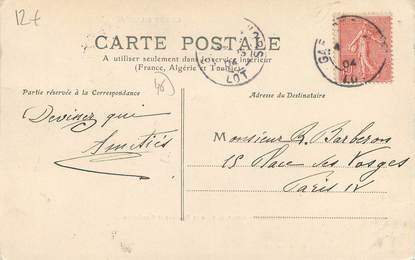 12€
CARTE POSTALE
A utiliser seulement dans le service intérieur
(France, Algérie et Tunisie)
Partie réservée à la Correspondance
46
Adresse du Destinataire
Devinez qui
Amitiés
Monsieur R. Barberon
15 Place des Vosges
Paris IV
04
LOT
04
LOT